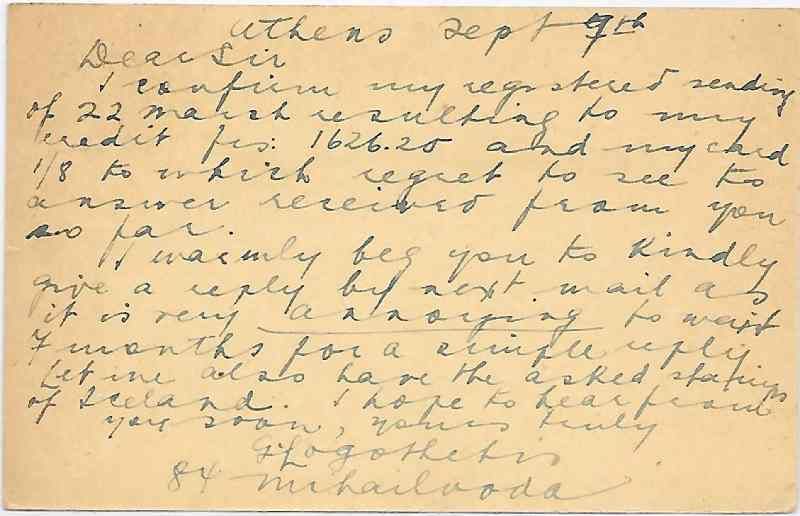 Athens Sept 7th
Dear Sir
I confirm my registered sending
of 22 marsh resulting to my
credit frs: 1626.20 and my card
1/8 to which regret to see to
answer received from you
so far.
I warmly beg you to kindly
give a reply by next mail as
it is very annoying to wait
7 months for a simple reply
Let me also have the asked stamps
of Iceland. I hope to hear from
you soon, yours truly
G Logothetis
84 Mihailvoda